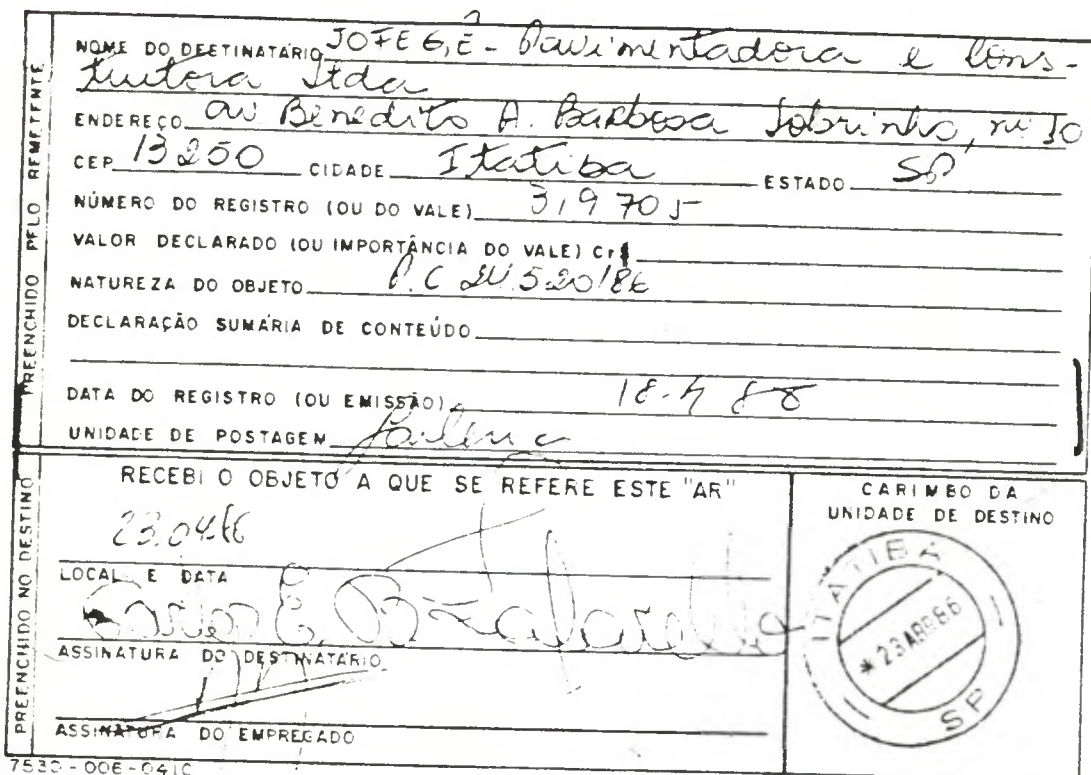 NOME DO DESTINATÁRIO JOFEGÊ - Pavimentadora e Cons-
trutora Ltda
ENDEREÇO av Benedito A. Barbosa Sobrinho, nº 10
CEP 13250 CIDADE Itatiba ESTADO SP
NÚMERO DO REGISTRO (OU DO VALE) 319705
VALOR DECLARADO (OU IMPORTÂNCIA DO VALE) Cr$
NATUREZA DO OBJETO P.C 520/86
DECLARAÇÃO SUMÁRIA DE CONTEÚDO
DATA DO REGISTRO (OU EMISSÃO) 18-4
UNIDADE DE POSTAGEM
PREENCHIDO PELO REMETENTE
RECEBI O OBJETO A QUE SE REFERE ESTE "AR"
23.04.86
LOCAL E DATA
ASSINATURA DO DESTINATÁRIO
ASSINATURA DO EMPREGADO
PREENCHIDO NO DESTINO
CARIMBO DA
UNIDADE DE DESTINO
ITATIBA
* 23 ABR 86
SP
7530-006-0410